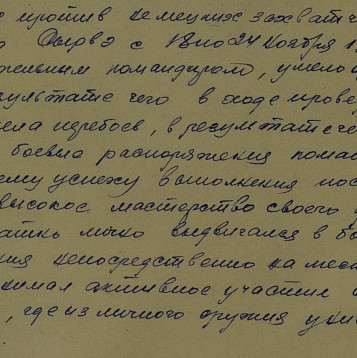 с против немецких захватч
Сырвэ с 18 по 24 ноября 1
тельным командиром, умело
зультате чего в ходе прове
мела перебоев, в результате че
боевые распоряжения пома
ему успеху выполнения пос
высокое мастерство своего
лично выдвигался в бо
ния непосредственно на мес
нимал активное участие
, где из личного оружия уни